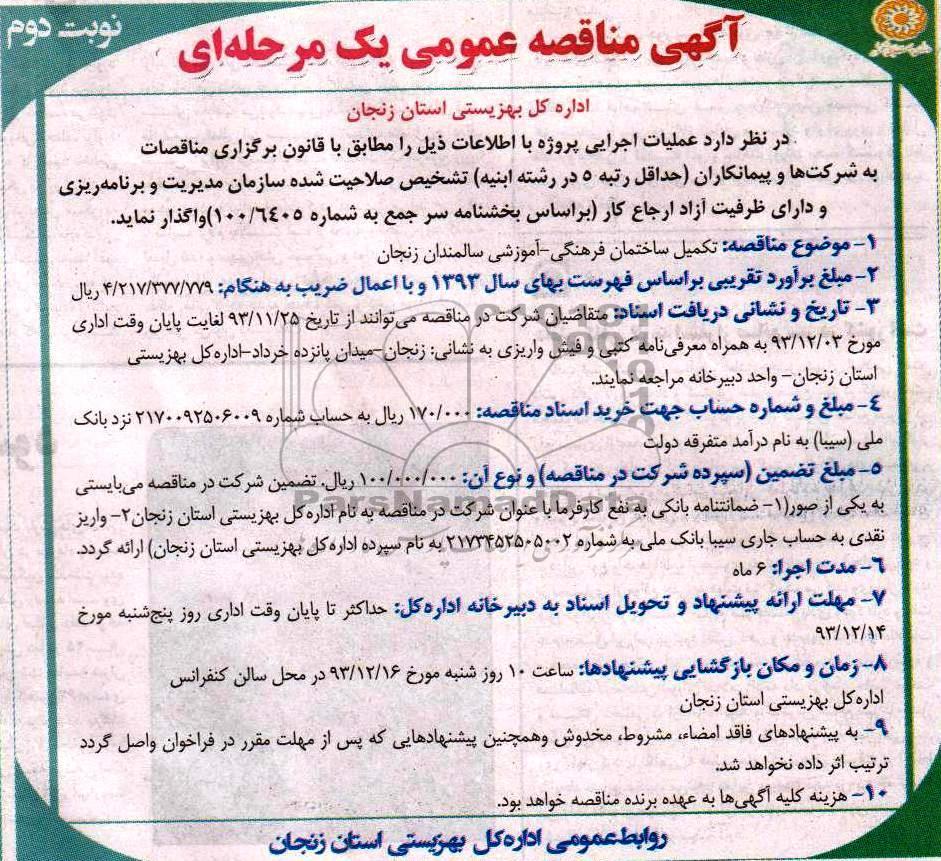 نوبت دوم
آگهی مناقصه عمومی یک مرحله‌ای
اداره کل بهزیستی استان زنجان
در نظر دارد عملیات اجرایی پروژه با اطلاعات ذیل را مطابق با قانون برگزاری مناقصات
به شرکت‌ها و پیمانکاران (حداقل رتبه ۵ در رشته ابنیه) تشخیص صلاحیت شده سازمان مدیریت و برنامه‌ریزی
و دارای ظرفیت آزاد ارجاع کار (براساس بخشنامه سر جمع به شماره ۱۰۰/۶۴۰۵)واگذار نماید.
۱- موضوع مناقصه: تکمیل ساختمان فرهنگی-آموزشی سالمندان زنجان
۲- مبلغ برآورد تقریبی براساس فهرست بهای سال ۱۳۹۳ و با اعمال ضریب به هنگام: ۴/۲۱۷/۳۷۷/۷۷۹ ریال
۳- تاریخ و نشانی دریافت اسناد: متقاضیان شرکت در مناقصه می‌توانند از تاریخ ۹۳/۱۱/۲۵ لغایت پایان وقت اداری
مورخ ۹۳/۱۲/۰۳ به همراه معرفی‌نامه کتبی و فیش واریزی به نشانی: زنجان-میدان پانزده خرداد-اداره‌کل بهزیستی
استان زنجان- واحد دبیرخانه مراجعه نمایند.
۴- مبلغ و شماره حساب جهت خرید اسناد مناقصه: ۱۷۰/۰۰۰ ریال به حساب شماره ۲۱۷۰۰۹۲۵۰۶۰۰۹ نزد بانک
ملی (سیبا) به نام درآمد متفرقه دولت
۵- مبلغ تضمین (سپرده شرکت در مناقصه) و نوع آن: ۱۰۰/۰۰۰/۰۰۰ ریال. تضمین شرکت در مناقصه می‌بایستی
به یکی از صور(۱- ضمانتنامه بانکی به نفع کارفرما با عنوان شرکت در مناقصه به نام اداره‌کل بهزیستی استان زنجان۲- واریز
نقدی به حساب جاری سیبا بانک ملی به شماره ۲۱۷۳۴۵۲۵۰۵۰۰۲ به نام سپرده اداره‌کل بهزیستی استان زنجان) ارائه گردد.
۶- مدت اجرا: ۶ ماه
۷- مهلت ارائه پیشنهاد و تحویل اسناد به دبیرخانه اداره‌کل: حداکثر تا پایان وقت اداری روز پنج‌شنبه مورخ
۹۳/۱۲/۱۴
۸- زمان و مکان بازگشایی پیشنهادها: ساعت ۱۰ روز شنبه مورخ ۹۳/۱۲/۱۶ در محل سالن کنفرانس
اداره‌کل بهزیستی استان زنجان
۹- به پیشنهادهای فاقد امضاء، مشروط، مخدوش وهمچنین پیشنهادهایی که پس از مهلت مقرر در فراخوان واصل گردد
ترتیب اثر داده نخواهد شد.
۱۰- هزینه کلیه آگهی‌ها به عهده برنده مناقصه خواهد بود.
روابط‌عمومی اداره‌کل بهزیستی استان زنجان
ParsNamadData